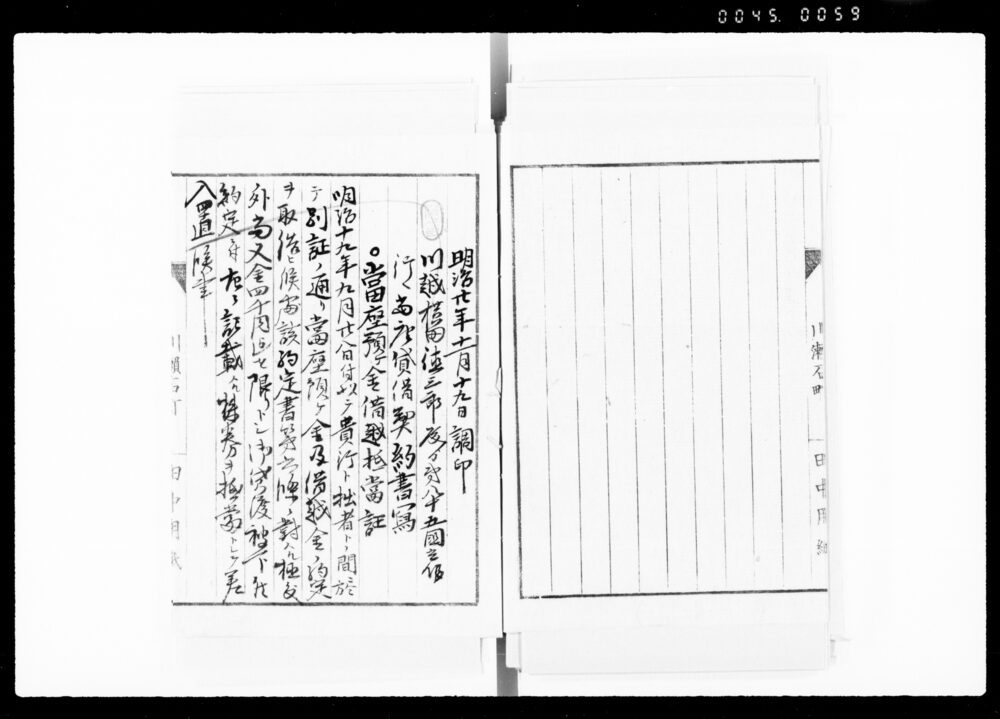 0045. 0059
川瀬石町
田中用紙
明治廿年十二月十九日調印
川越 横田德三郎 第八十五國立銀
行ト当座貸借契約書寫
○當座預ケ金借越抵當証
明治十九年九月廿八日付以テ貴行ト拙者トノ間ニ於
テ別証ノ通リ當座預ケ金及借越金ノ約定
ヲ取結ヒ候處該約定書第六條ニ對スル極度
外尚又金四千円迠ヲ限リトシ御貸渡被下候
約定ニ付左ニ記載スル券ヲ抵當トシテ差
入置候
川瀬石町
田中用紙